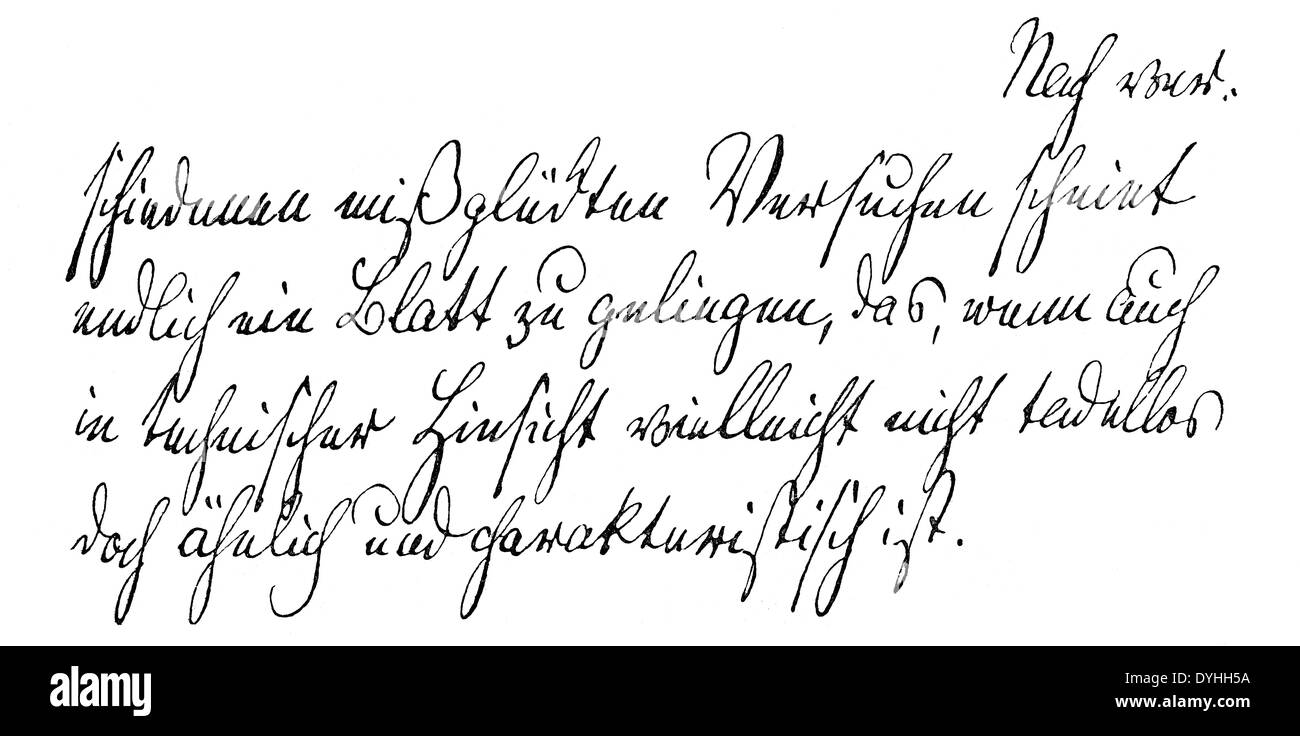 Nach ver-
schiedenen mißglückten Versuchen scheint
endlich ein Blatt zu gelingen, das, wenn auch
in technischer Hinsicht vielleicht nicht tadellos
doch ähnlich und charakteristisch ist.
alamy
Image ID: DYHH5A
www.alamy.com